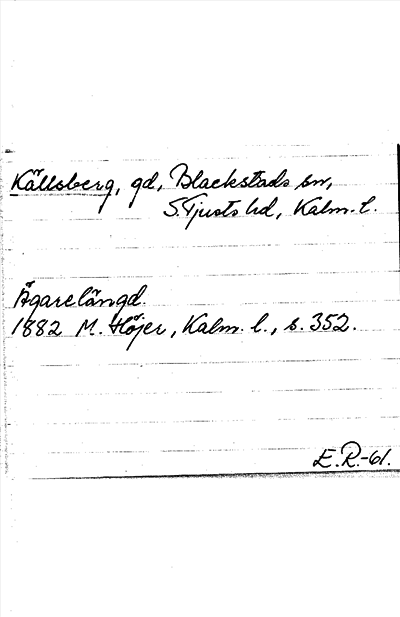 Källsberg, gd, Blackstads sn,
S. Tjusts hd, Kalm. l.
Ägarelängd.
1882 M. Höjer, Kalm. l., s. 352.
E.R.-61.